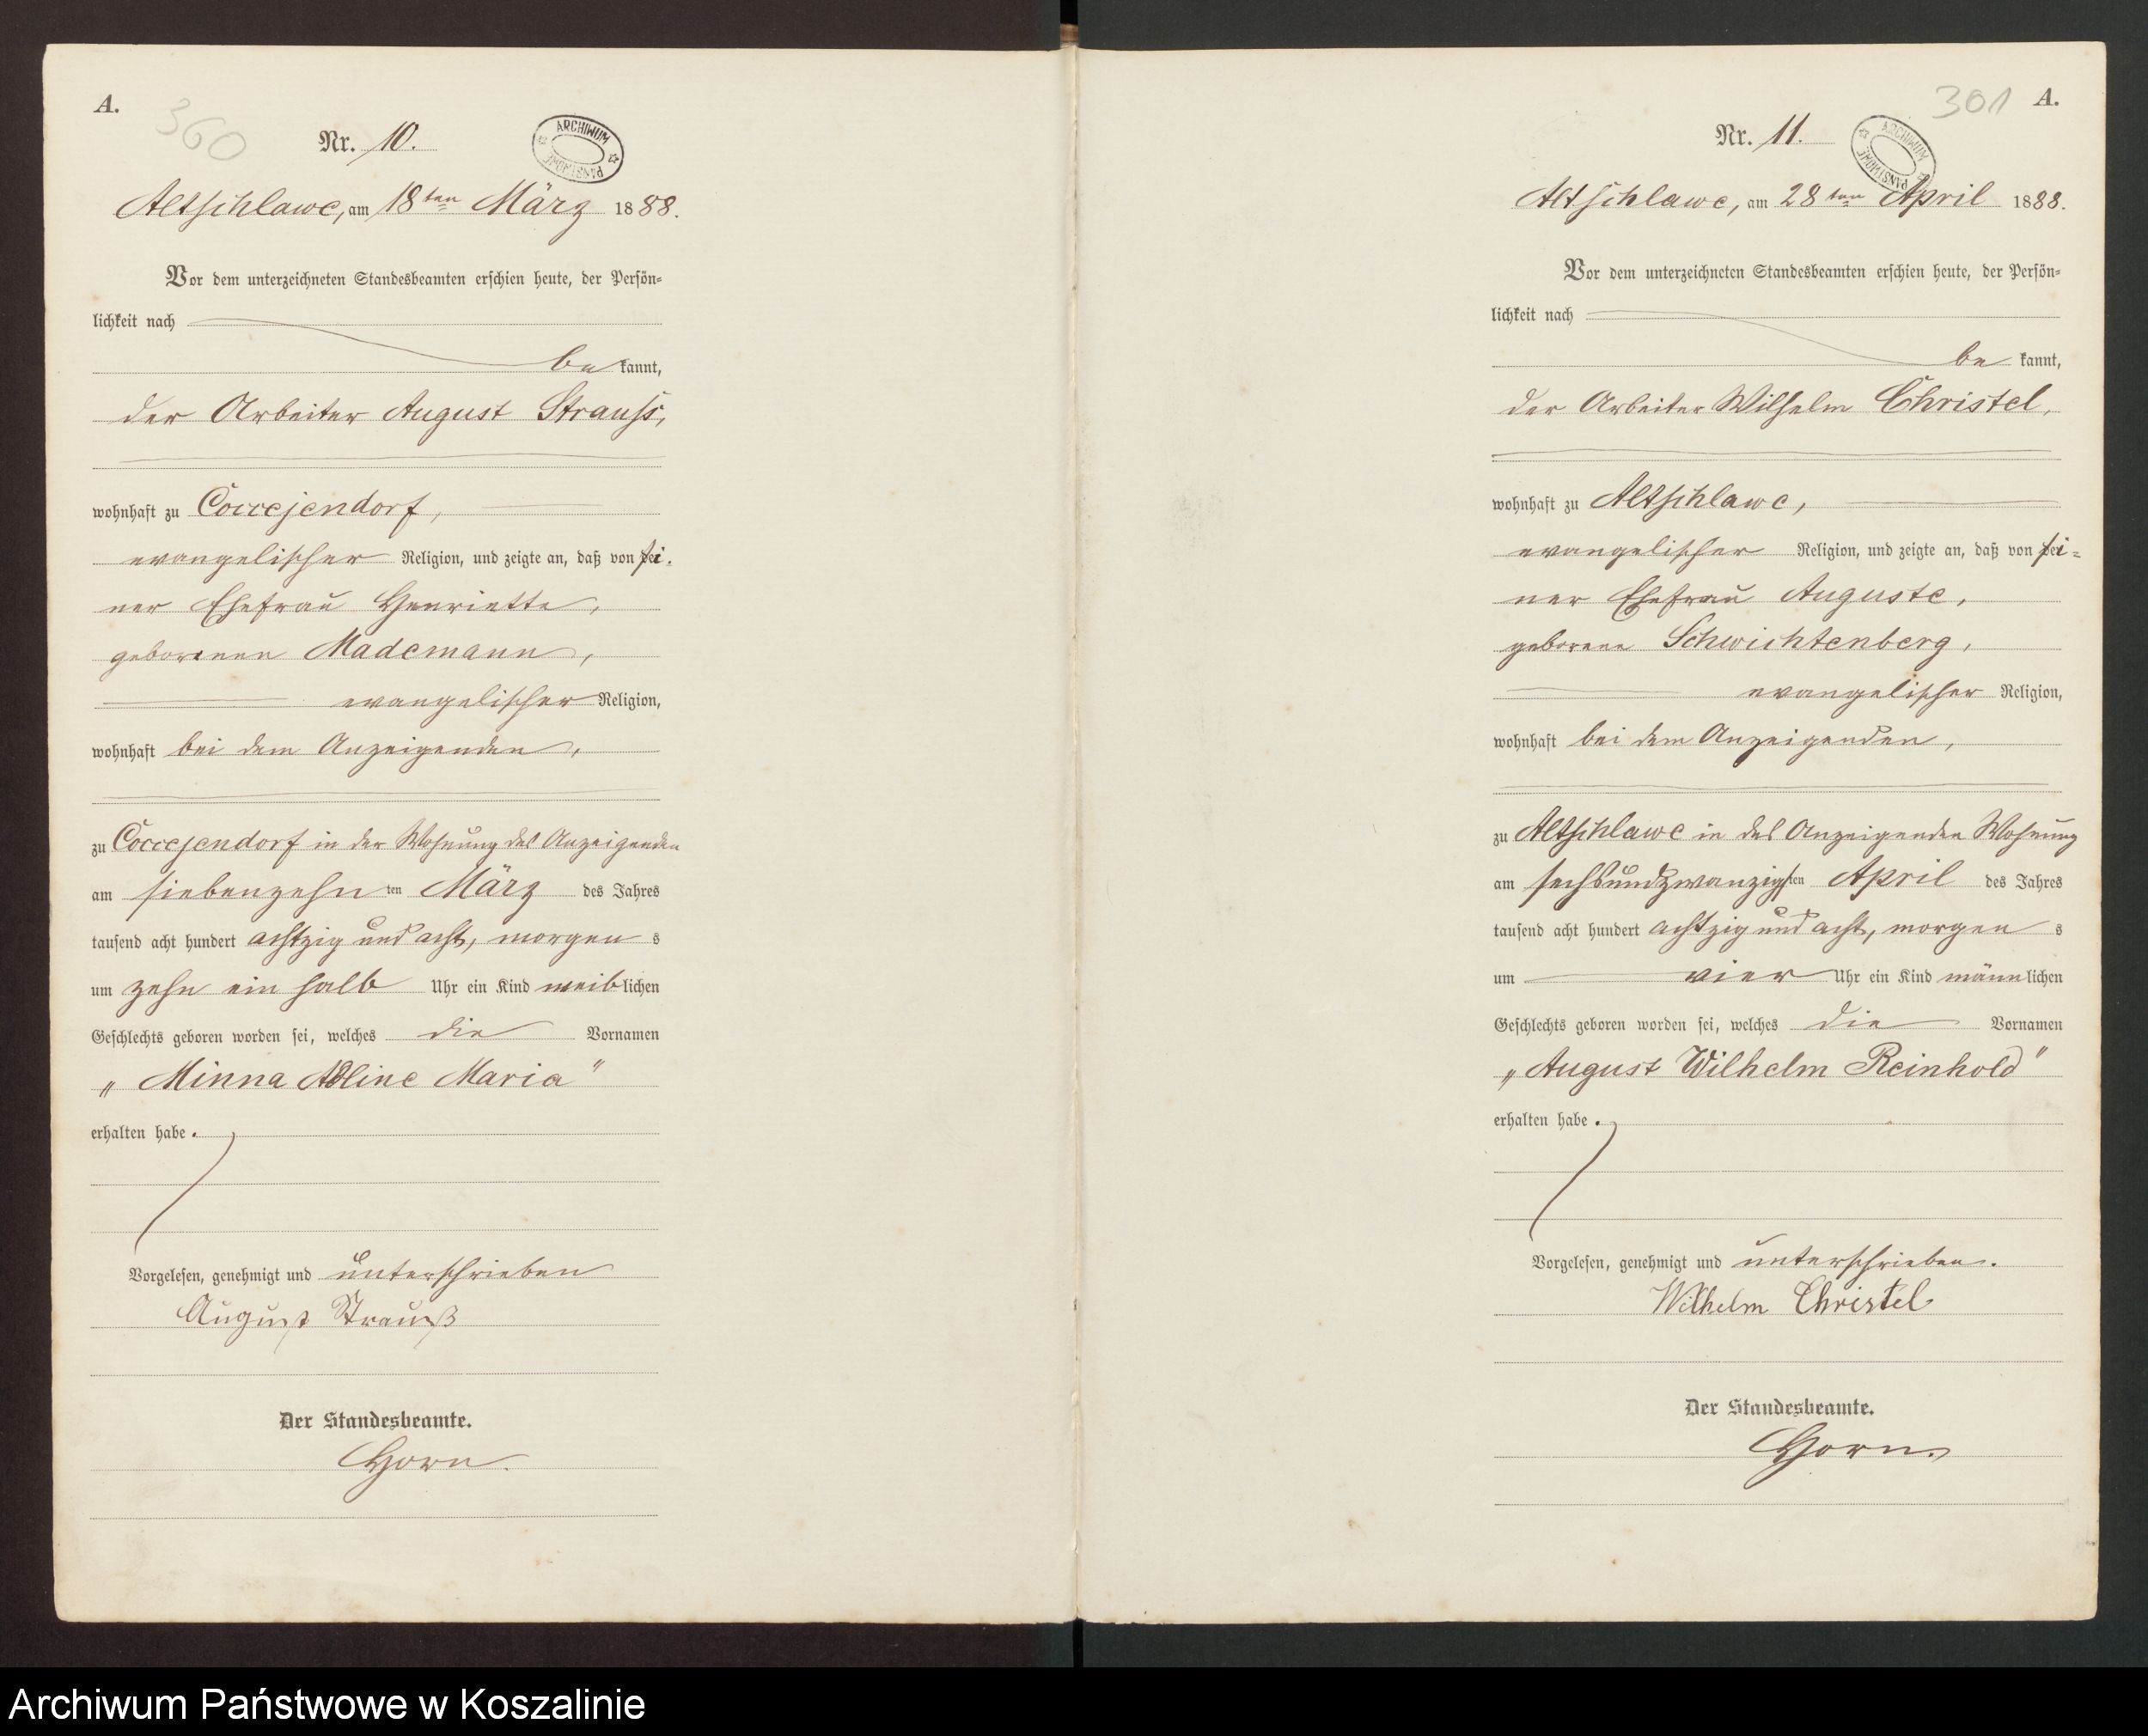 A.
360
Nr. 10.
ARCHIWUM PAŃSTWOWE
Altschlawe, am 18ten März 1888.
Vor dem unterzeichneten Standesbeamten erschien heute, der Persön-
lichkeit nach
be kannt,
der Arbeiter August Strauss,
wohnhaft zu Coccejendorf,
evangelischer Religion, und zeigte an, daß von sei-
ner Ehefrau Henriette,
geborenen Mademann,
evangelischer Religion,
wohnhaft bei dem Anzeigenden,
zu Coccejendorf in der Wohnung des Anzeigenden
am siebenzehn ten März des Jahres
tausend acht hundert achtzig und acht, morgen s
um zehn ein halb Uhr ein Kind weib lichen
Geschlechts geboren worden sei, welches die Vornamen
„Minna Adline Maria"
erhalten habe.
Vorgelesen, genehmigt und unterschrieben
August Strauß
Der Standesbeamte.
Horn.
301 A.
Nr. 11.
ARCHIWUM PAŃSTWOWE
Altschlawe, am 28ten April 1888.
Vor dem unterzeichneten Standesbeamten erschien heute, der Persön-
lichkeit nach
be kannt,
der Arbeiter Wilhelm Christel,
wohnhaft zu Altschlawe,
evangelischer Religion, und zeigte an, daß von sei-
ner Ehefrau Auguste,
geborene Schwichtenberg,
evangelischer Religion,
wohnhaft bei dem Anzeigenden,
zu Altschlawe in des Anzeigenden Wohnung
am sechsundzwanzigsten April des Jahres
tausend acht hundert achtzig und acht, morgen s
um vier Uhr ein Kind männ lichen
Geschlechts geboren worden sei, welches die Vornamen
„August Wilhelm Reinhold"
erhalten habe.
Vorgelesen, genehmigt und unterschrieben.
Wilhelm Christel
Der Standesbeamte.
Horn.
Archiwum Państwowe w Koszalinie